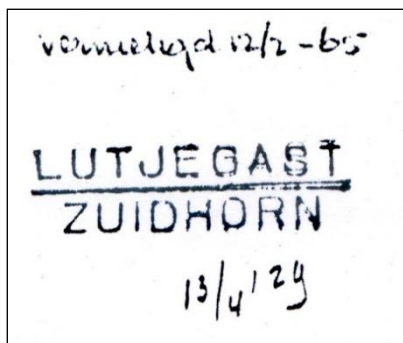 vernietigd 12/2 - 65
LUTJEGAST
ZUIDHORN
13/4 '29